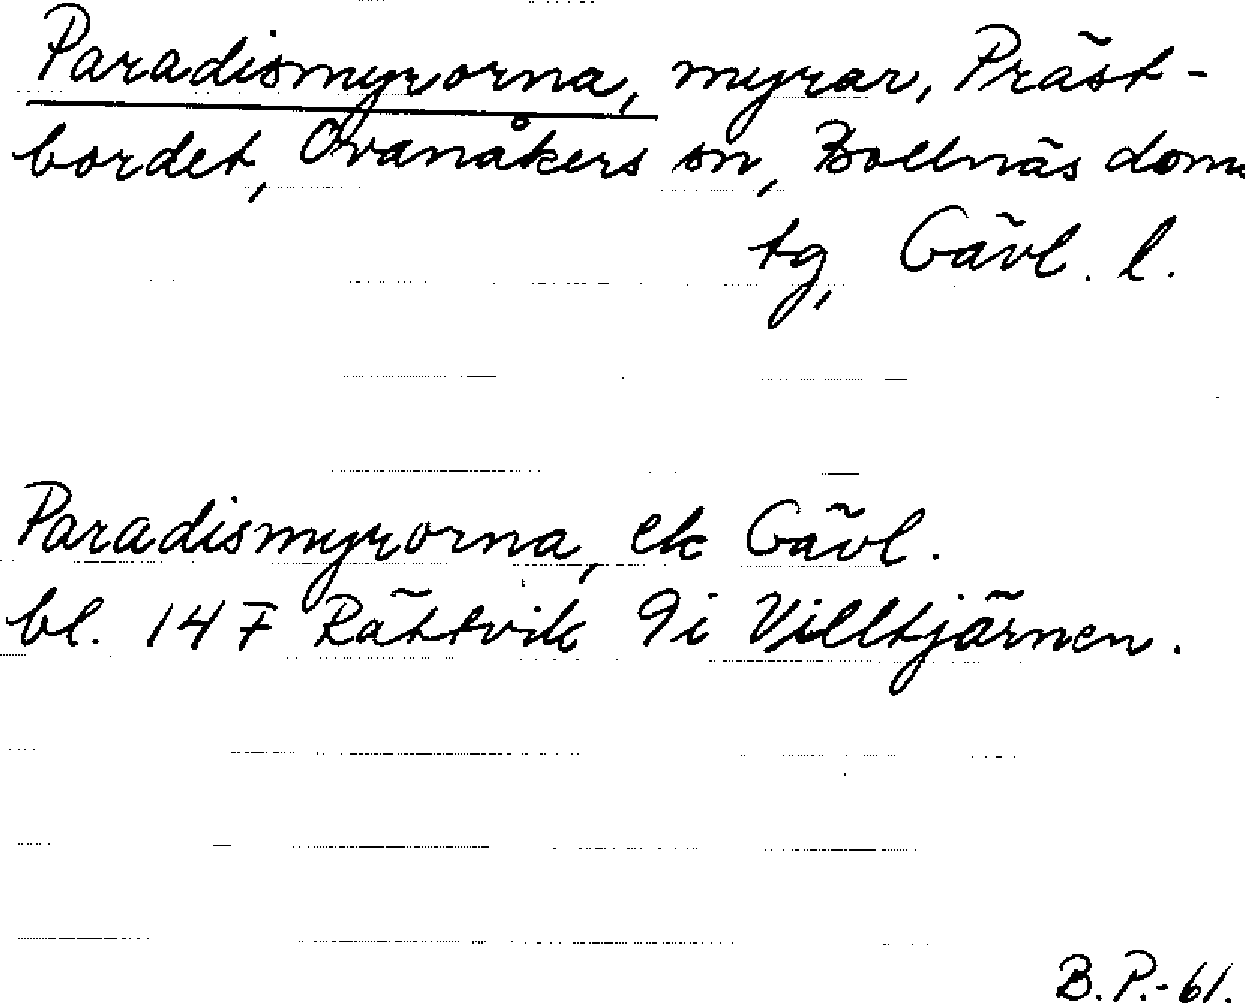 Paradismyrorna, myrar, Präst-
bordet, Ovanåkers sn, Bollnäs doms
tg, Gävl. l.
Paradismyrorna, ek Gävl.
bl. 14 F Rättvik 9i Villtjärnen.
B.P.-61.